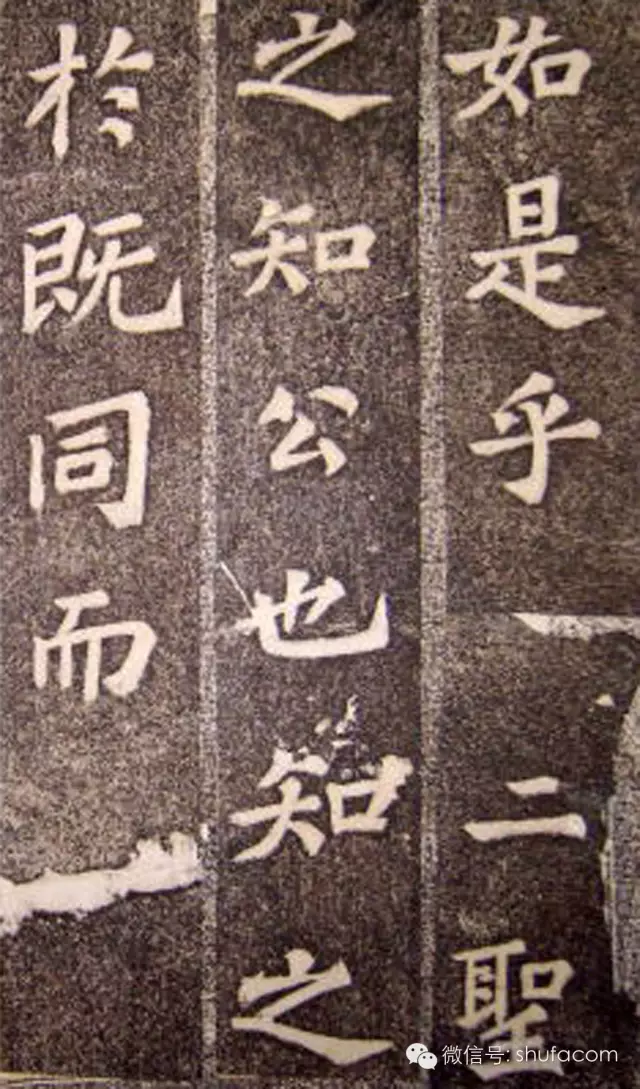 如是乎二聖
之知公也知之
於既同而
微信号: shufacom